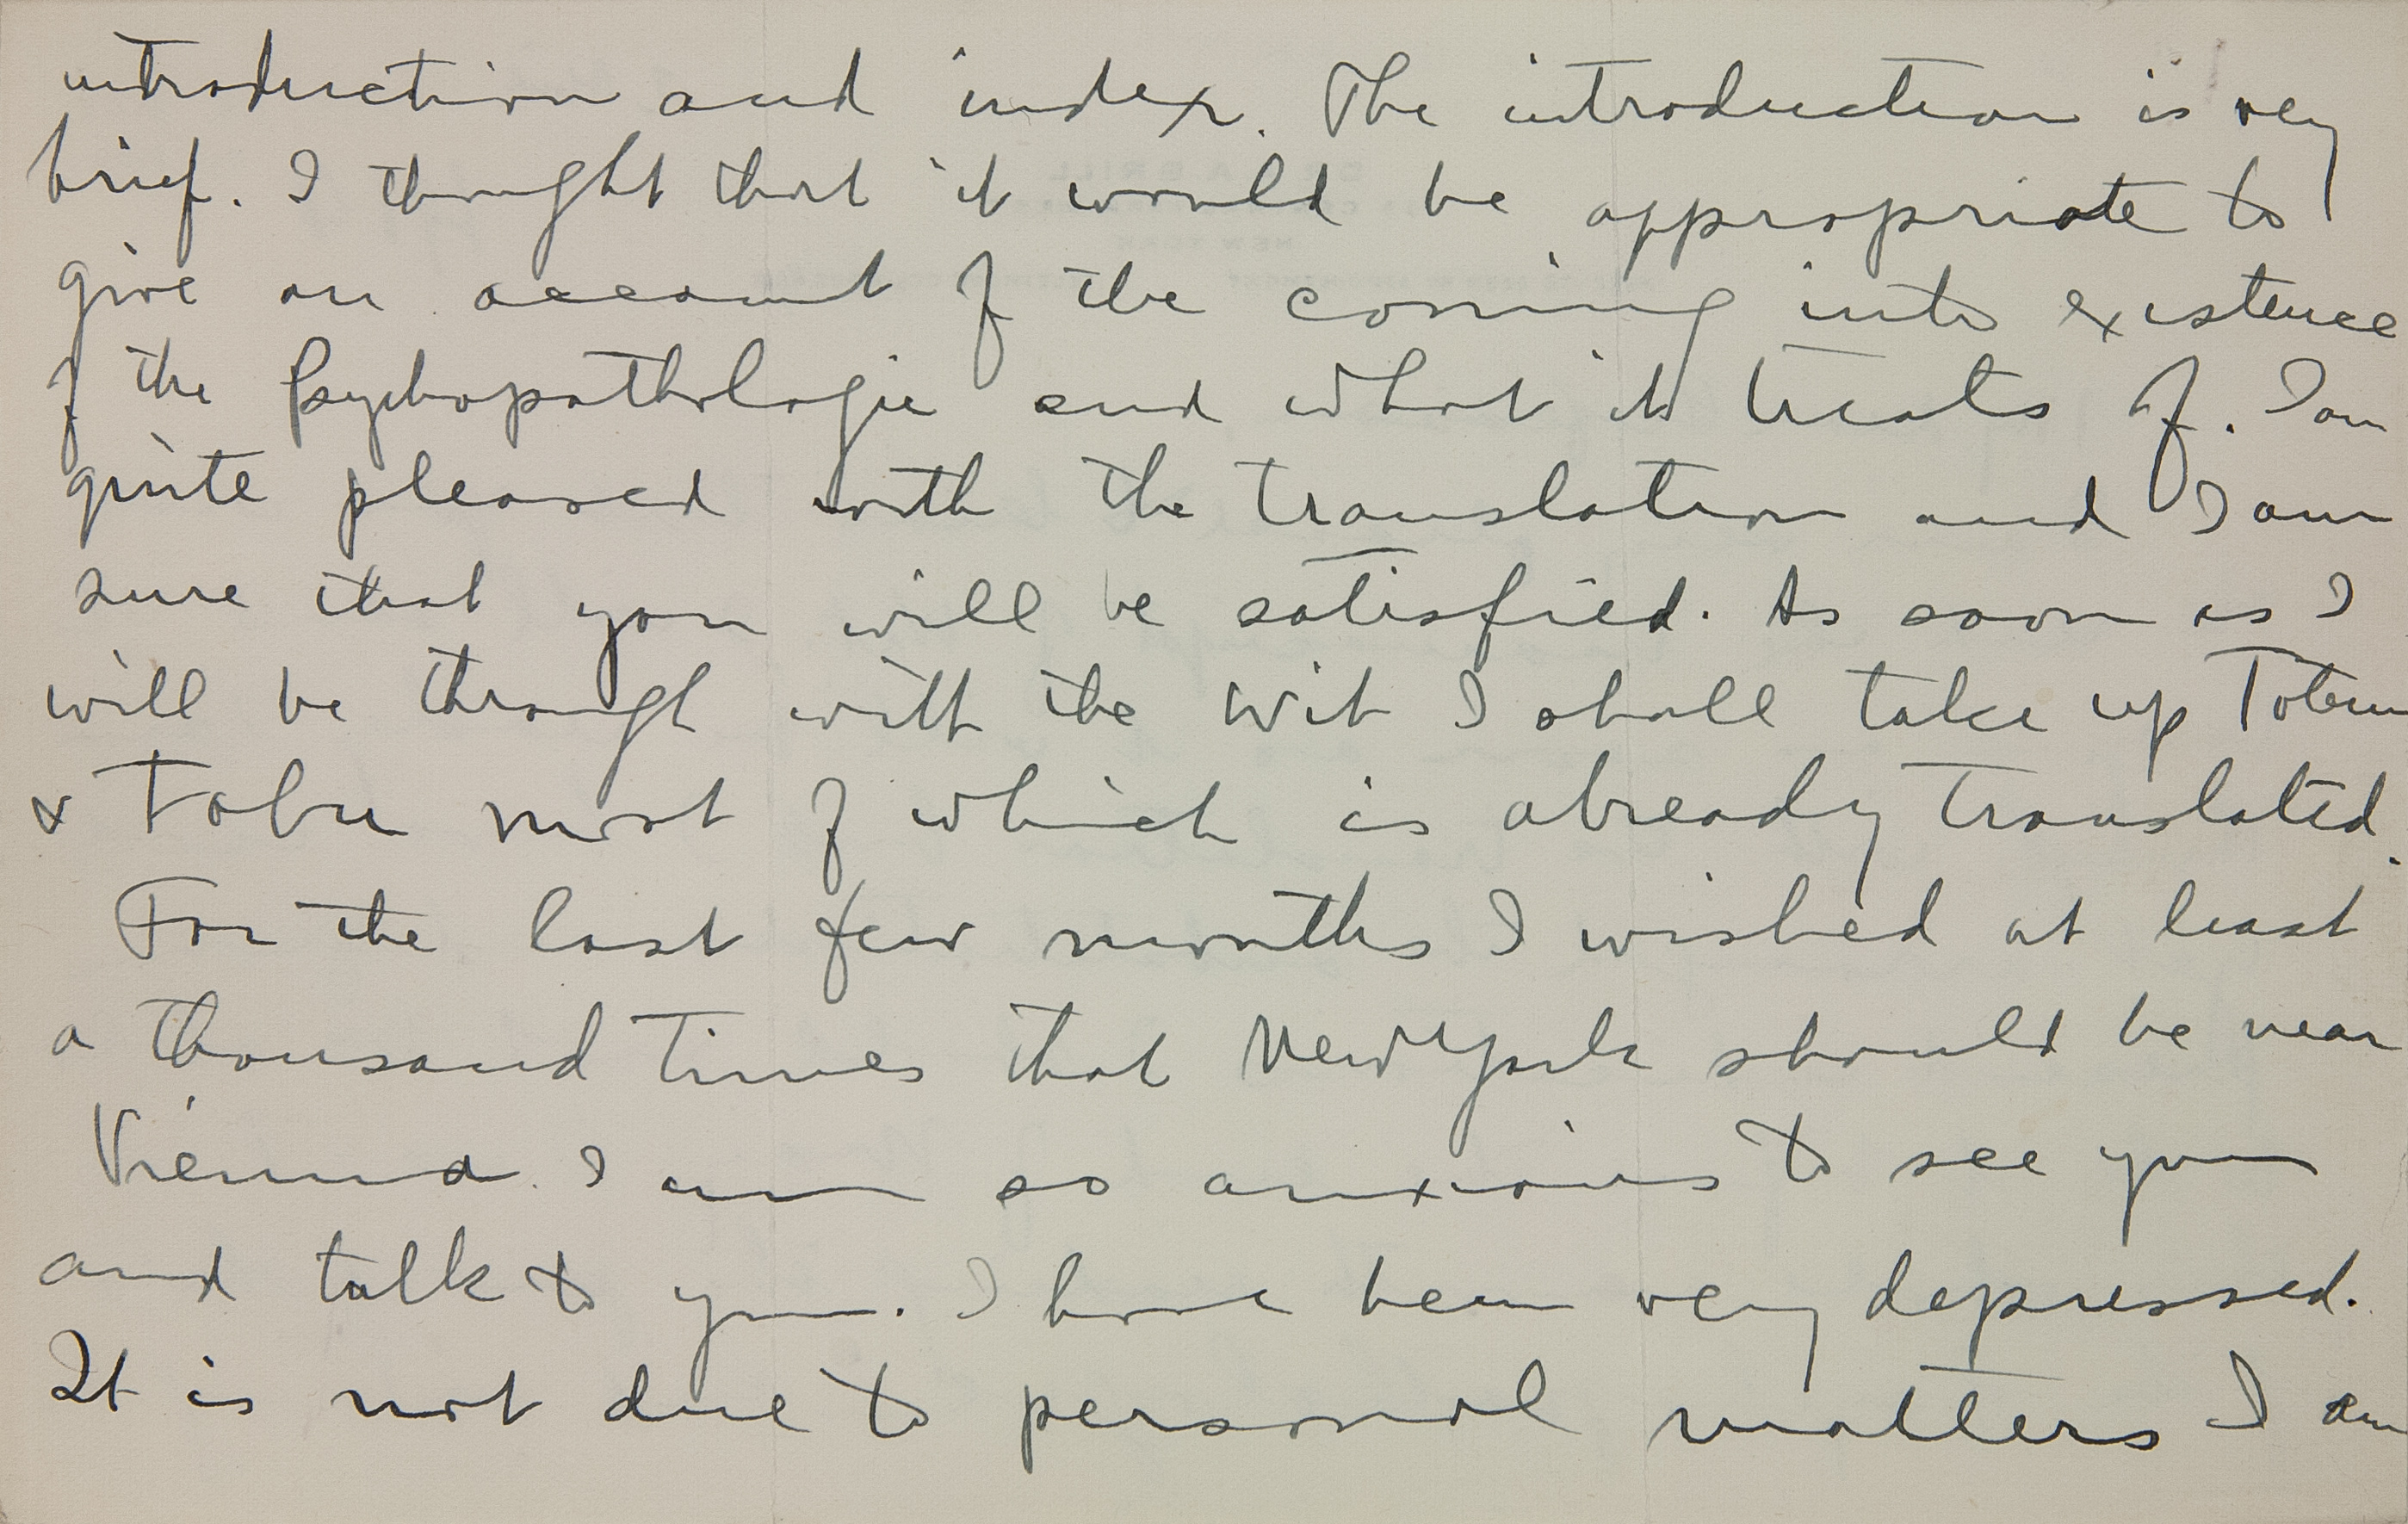 introduction and index. The introduction is very
brief. I thought that it would be appropriate to
give an account of the coming into existence
of the Psychopathologie and what it treats of. I am
quite pleased with the translation and I am
sure that you will be satisfied. As soon as I
will be through with the Wit I shall take up Totem
& Tabu most of which is already translated.
For the last few months I wished at least
a thousand times that New York should be near
Vienna. I am so anxious to see you
and talk to you. I have been very depressed.
It is not due to personal matters I am